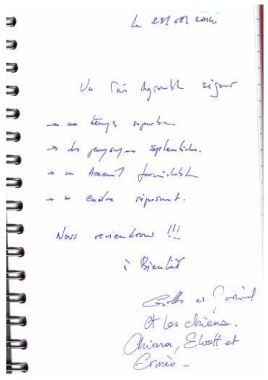 Un Très Agréable séjour
→ un temps superbe
→ des paysages splendides.
→ un Accueil formidable
→ un cadre reposant.
Nous reviendrons !!!
à Bientôt
et
Et les chiens.
Chiara, Eliott et